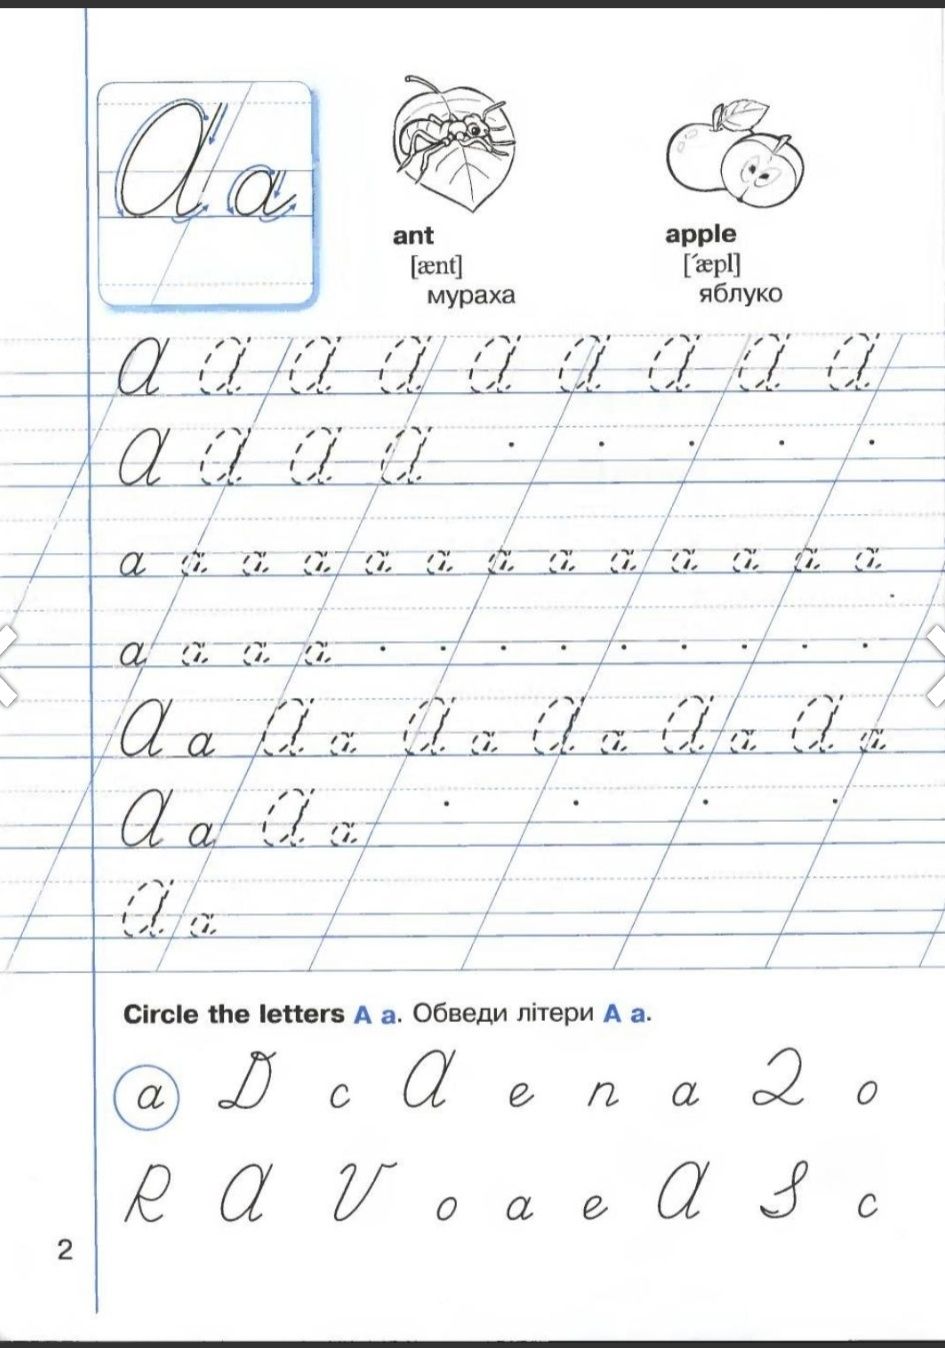 A a
ant apple
[ænt] [ˊæpl]
мураха яблуко
A A A A A A A A A
A A A A
a a a a a a a a a a a a a
a a a a
A a A a A a A a A a A a
A a A a
A a
Circle the letters A a. Обведи літери A a.
a D c A e n a Q o
R A V o a e A S c
2